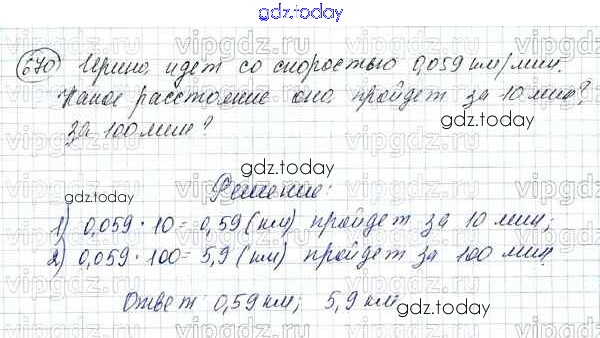 gdz.today
670 Ирина идет со скоростью 0,059 км/мин.
Какое расстояние она пройдет за 10 мин?
за 100 мин?
gdz.today
gdz.today
Решение:
1) 0,059 · 10 = 0,59 (км) пройдет за 10 мин;
2) 0,059 · 100 = 5,9 (км) пройдет за 100 мин.
Ответ: 0,59 км; 5,9 км
gdz.today